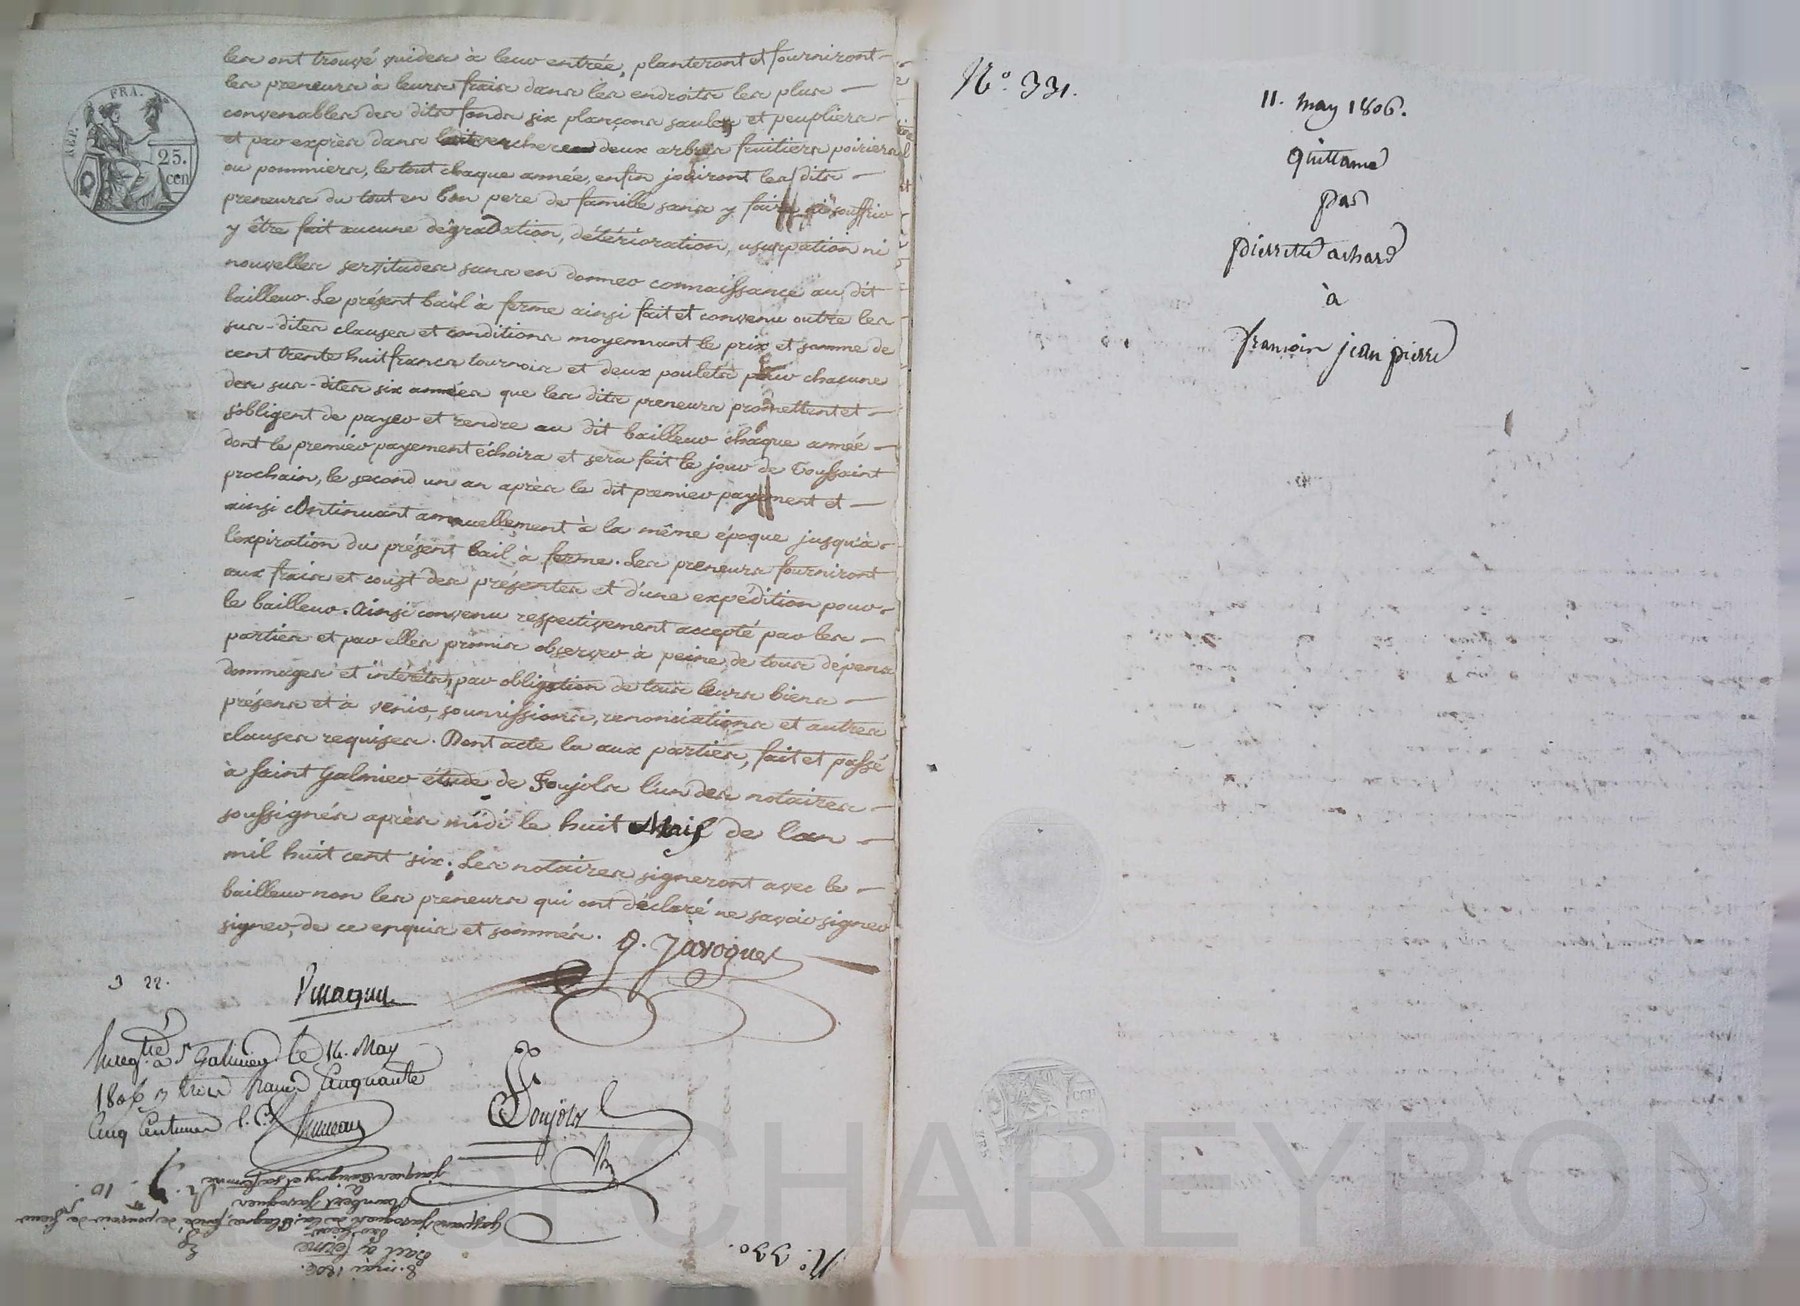 les ont trouvé vuides à leur entrée, planteront et fourniront
les preneurs à leurs frais dans les endroits les plus
convenables des dits fonds six plançons saules et peupliers
et par exprès dans deux arbres fruitiers poiriers
ou pommiers, le tout chaque année, enfin jouiront les dits
preneurs du tout en bon pere de famille sans y faire ni souffrir
y être fait aucune dégradation, détérioration, usurpation ni
nouvelles servitudes sans en donner connaissance au dit
bailleur. Le présent bail à ferme ainsi fait et convenu outre les
sus-dites clauses et conditions moyennant le prix et somme de
cent trente huit francs tournois et deux poulets pour chacune
des sus-dites six années que les dits preneurs promettent et
s'obligent de payer et rendre au dit bailleur chaque année
dont le premier payement échoira et sera fait le jour de Toussaint
prochain, le second un an après le dit premier payement et
ainsi continuant annuellement à la même époque jusqu'à
l'expiration du présent bail à ferme. Les preneurs fourniront
aux frais et coust des présentes et d'une expédition pour
le bailleur. Ainsi convenu respectivement accepté par les
parties et par elles promis observer à peine de tous dépens
dommages et intérêts, par obligation de tous leurs biens
présens et à venir, soumissions, renonciations et autres
clauses requises. Dont acte lu aux parties, fait et passé
à Saint Galmier étude de Foujols l'un des notaires
soussignés après midi le huit Mais de l'an
mil huit cent six. Les notaires signeront avec le
bailleur non les preneurs qui ont déclaré ne savoir signer
signer, de ce enquis et sommés. G. Javogues
3 22.
Enregtré à St Galmier le 16. May
1806 n treize francs Cinquante
Cinq Centimes
Foujols
N.º 330.
8. mai 1806.
Bail à ferme
REP. FRA.
25.
cen
N.º 331.
11. may 1806.
quittance
par
pierrette achard
à
françois jean pierre
CHAREYRON